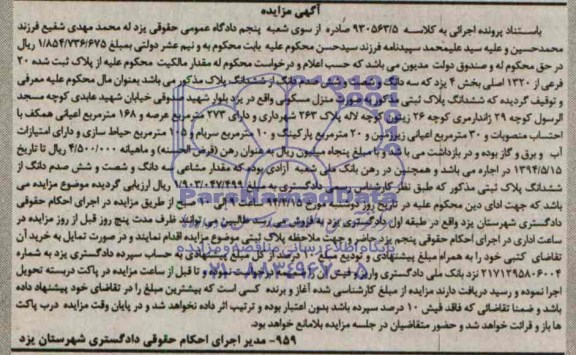 آگهی مزایده
باستناد پرونده اجرائی به کلاسه ۹۳۰۵۶۳/۵ صادره از سوی شعبه پنجم دادگاه عمومی حقوقی یزد له محمد مهدی شفیع فرزند
محمدحسین و علیه سید علیمحمد سپیدنامه فرزند سیدحسن محکوم علیه بابت محکوم به و نیم عشر دولتی بمبلغ ۱/۸۵۴/۷۳۶/۶۷۵ ریال
در حق محکوم له و صندوق دولت مدیون می باشد که حسب اعلام و درخواست محکوم له مقدار مالکیت محکوم علیه از پلاک ثبت شده ۲۰
فرعی از ۱۳۲۰ اصلی بخش ۴ یزد که سه دانگ و شصت و شش صدم دانگ از ششدانگ پلاک مذکور می باشد بعنوان مال محکوم علیه معرفی
و توقیف گردیده که ششدانگ پلاک ثبتی مذکور به صورت منزل مسکونی واقع در یزد بلوار شهید صدوقی خیابان شهید عابدی کوچه مسجد
الرسول کوچه ۲۹ ژاندارمری کوچه ۲۶ زیتون کوچه لاله پلاک ۲۶۳ شهرداری و دارای ۲۷۳ مترمربع عرصه و ۱۶۸ مترمربع اعیانی همکف با
احتساب منصوبات و ۳۰ مترمربع اعیانی زیرزمین و ۲۰ مترمربع پارکینگ و ۱۰ مترمربع سرپام و ۱۰۵ مترمربع حیاط سازی و دارای امتیازات
آب و برق و گاز بوده و در بازداشت می باشد و با مبلغ پنجاه میلیون ریال به عنوان رهن (قرض الحسنه) و ماهیانه ۴/۵۰۰/۰۰۰ ریال تا تاریخ
۱۳۹۴/۵/۱۵ در اجاره می باشد و همچنین در رهن بانک ملی شعبه آزادی بوده که مقدار مشاعی سه دانگ و شصت و شش صدم دانگ از
ششدانگ پلاک ثبتی مذکور که طبق نظر کارشناس رسمی دادگستری به مبلغ ۱/۹۰۳/۰۴۷/۴۹۹ ریال ارزیابی گردیده موضوع مزایده می
باشد که جهت ادای دین محکوم علیه در تاریخ روز دوشنبه مورخ از طریق مزایده در اجرای احکام حقوقی
دادگستری شهرستان یزد واقع در طبقه اول دادگستری یزد به فروش می رسد طالبین می توانند ظرف مدت پنج روز قبل از روز مزایده در
ساعت اداری در اجرای احکام حقوقی پنجم یزد جهت ملاحظه پلاک ثبتی موضوع مزایده اقدام نمایند و در صورت تمایل به خرید آن
تقاضای کتبی خود را به همراه مبلغ پیشنهادی و تودیع مبلغ ۱۰ درصد از کل مبلغ پیشنهادی به حساب سپرده دادگستری یزد به شماره
۲۱۷۱۲۹۵۸۰۶۰۰۴ نزد بانک ملی دادگستری واریز و فیش آن را ضمیمه درخواست نموده و تا قبل از ساعت مزایده در پاکت دربسته تحویل
اجرا نموده و رسید دریافت دارند مزایده از مبلغ کارشناسی شده آغاز و برنده کسی است که بیشترین مبلغ را در تقاضای خود پیشنهاد داده
باشد و ضمنا تقاضائی که فاقد فیش ۱۰ درصد سپرده باشد بدون اعتبار بوده و ترتیب اثر داده نخواهد شد و در پایان وقت مزایده درب پاکت
ها باز و قرائت خواهد شد و حضور متقاضیان در جلسه مزایده بلامانع خواهد بود.
۹۵۹- مدیر اجرای احکام حقوقی دادگستری شهرستان یزد
ParsNamadData
پایگاه اطلاع رسانی مناقصه و مزایده